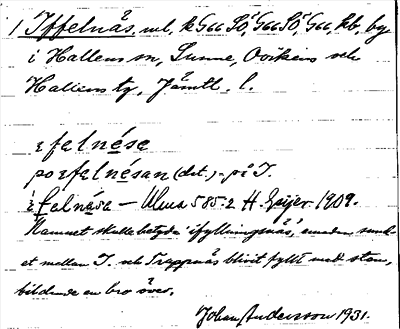 1 Yffelnäs, ml, k G66 SÖ, G66 SÖ, G66, Rb, by
i Hallens sn, Sunne, Ovikens och
Hallens tg, Jämtl. l.
ɛfalnésɛ
poɛfalnésan (det.) - på I.
falnása — Ulma 585:2 H. Geijer 1909.
Namnet skulle betyda 'ifyllningsnäs', emedan sund-
et mellan I. och Trappnäs blivit fyllt med sten,
bildande en bro över.
Johan Andersson 1931.